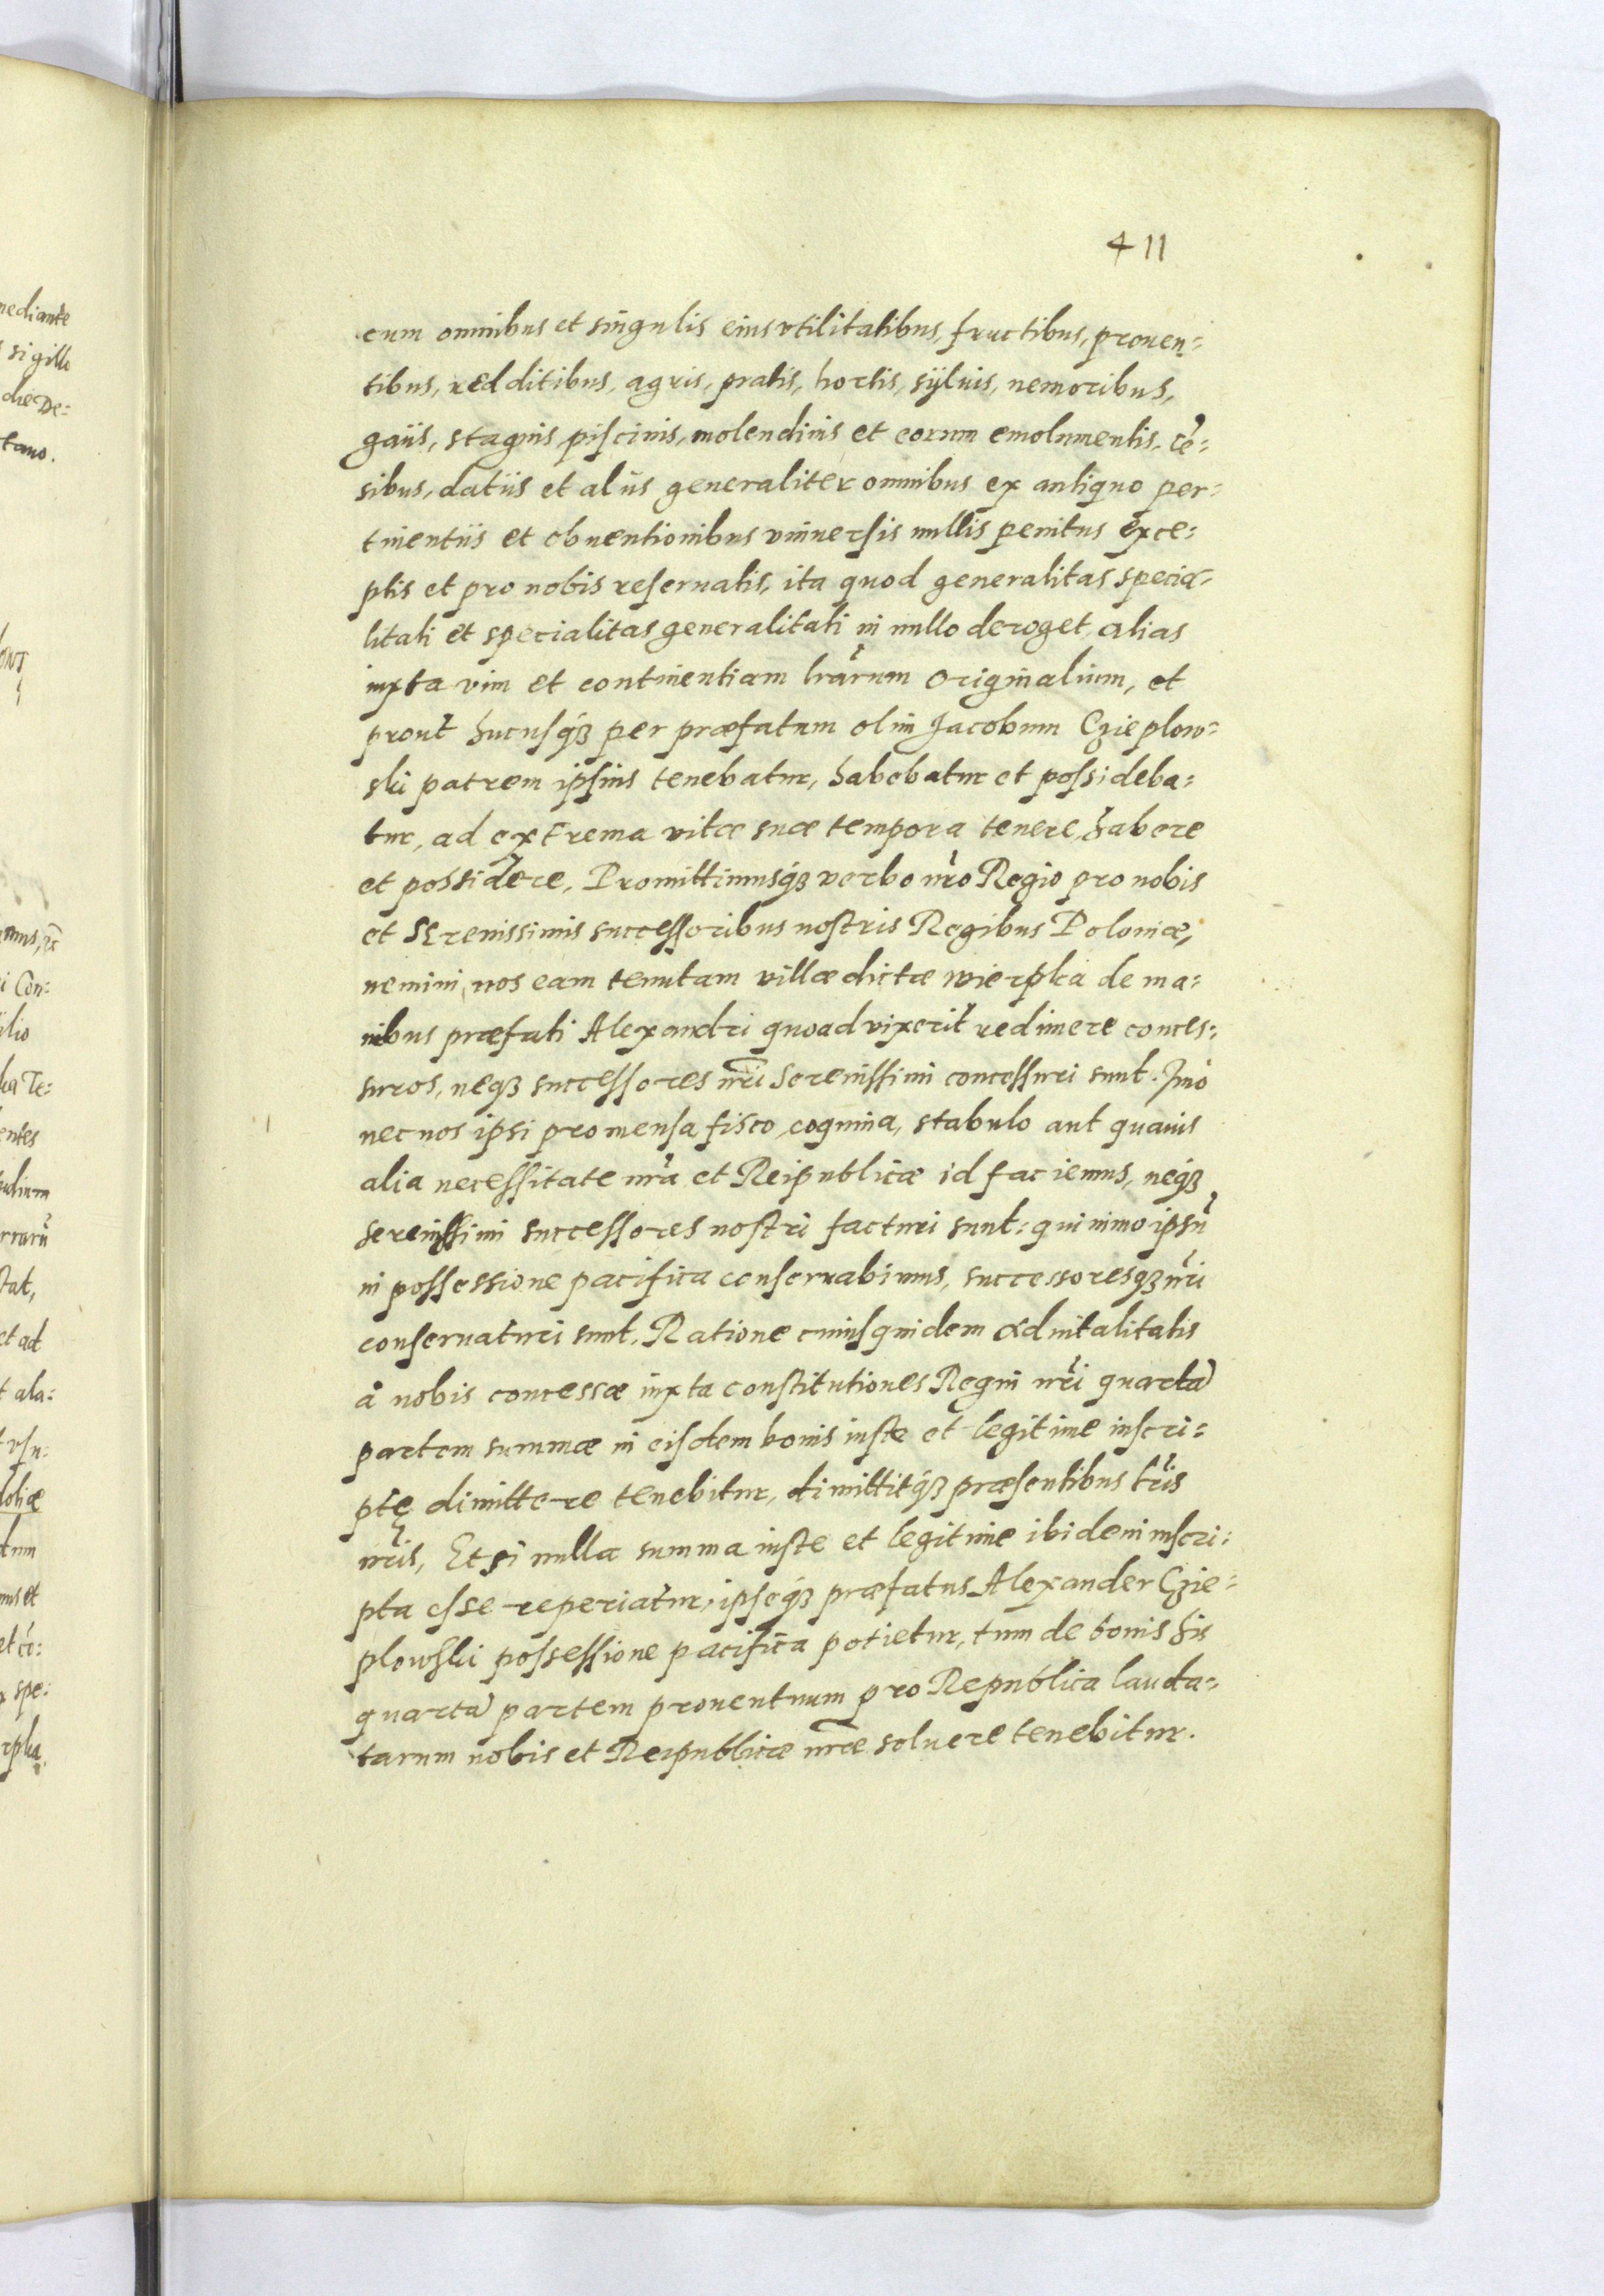 411
cum omnibus et singulis eius vtilitatibus, fructibus, prouen=
tibus, redditibus, agris, pratis, hortis, syluis, nemoribus,
gaiis, stagnis, piscinis, molendinis et eorum emolumentis, cē=
sibus, datiis et aliis generaliter omnibus ex antiquo per=
tinentiis et obuentionibus vniuersis nullis penitus exce=
ptis et pro nobis reseruatis, ita quod generalitas specia=
litati et specialitas generalitati in nullo deroget, alias
iuxta vim et continentiam lr̃arum originalium, et
prout hucusq́ꝫ per præfatum olim Jacobum Czieplow=
ski patrem ipsius tenebatur, habebatur et possideba=
tur, ad extrema vitæ suæ tempora tenere, habere
et possidere, Promittimusq́ꝫ verbo nr̃o Regio pro nobis
et Serenissimis successoribus nostris Regibus Poloniæ,
nemini nos eam tenutam villæ dictæ wierpka de ma=
nibus præfati Alexandri quoad vixerit redimere conces=
suros, neqꝫ successores nr̃i Serenissimi concessuri sunt. Imò
nec nos ipsi pro mensa fisco, coquina, stabulo aut quauis
alia necessitate nr̃a et Reipublicæ id faciemus, neq́ꝫ
serenissimi successores nostri facturi sunt: quinimo ipsũ
in possessione pacifica conseruabimus, successoresqꝫ nr̃i
conseruaturi sunt. Ratione cuiusquidem aduitalitatis
à nobis concessæ iuxta constitutiones Regni nr̃i quartã
partem summæ in eisdem bonis iuste et legitime inscri=
ptę dimittere tenebitur, dimittitq́ꝫ præsentibus lr̃is
nr̃is, Et si nulla summa iuste et legitime ibidem inscri=
pta esse reperiatur, ipseq́ꝫ præfatus Alexander Czie=
plowski possessione pacifica potietur, tum de bonis his
quartã partem prouentuum pro Republica lauda=
tarum nobis et Reipublicæ nr̃æ soluere tenebitur.